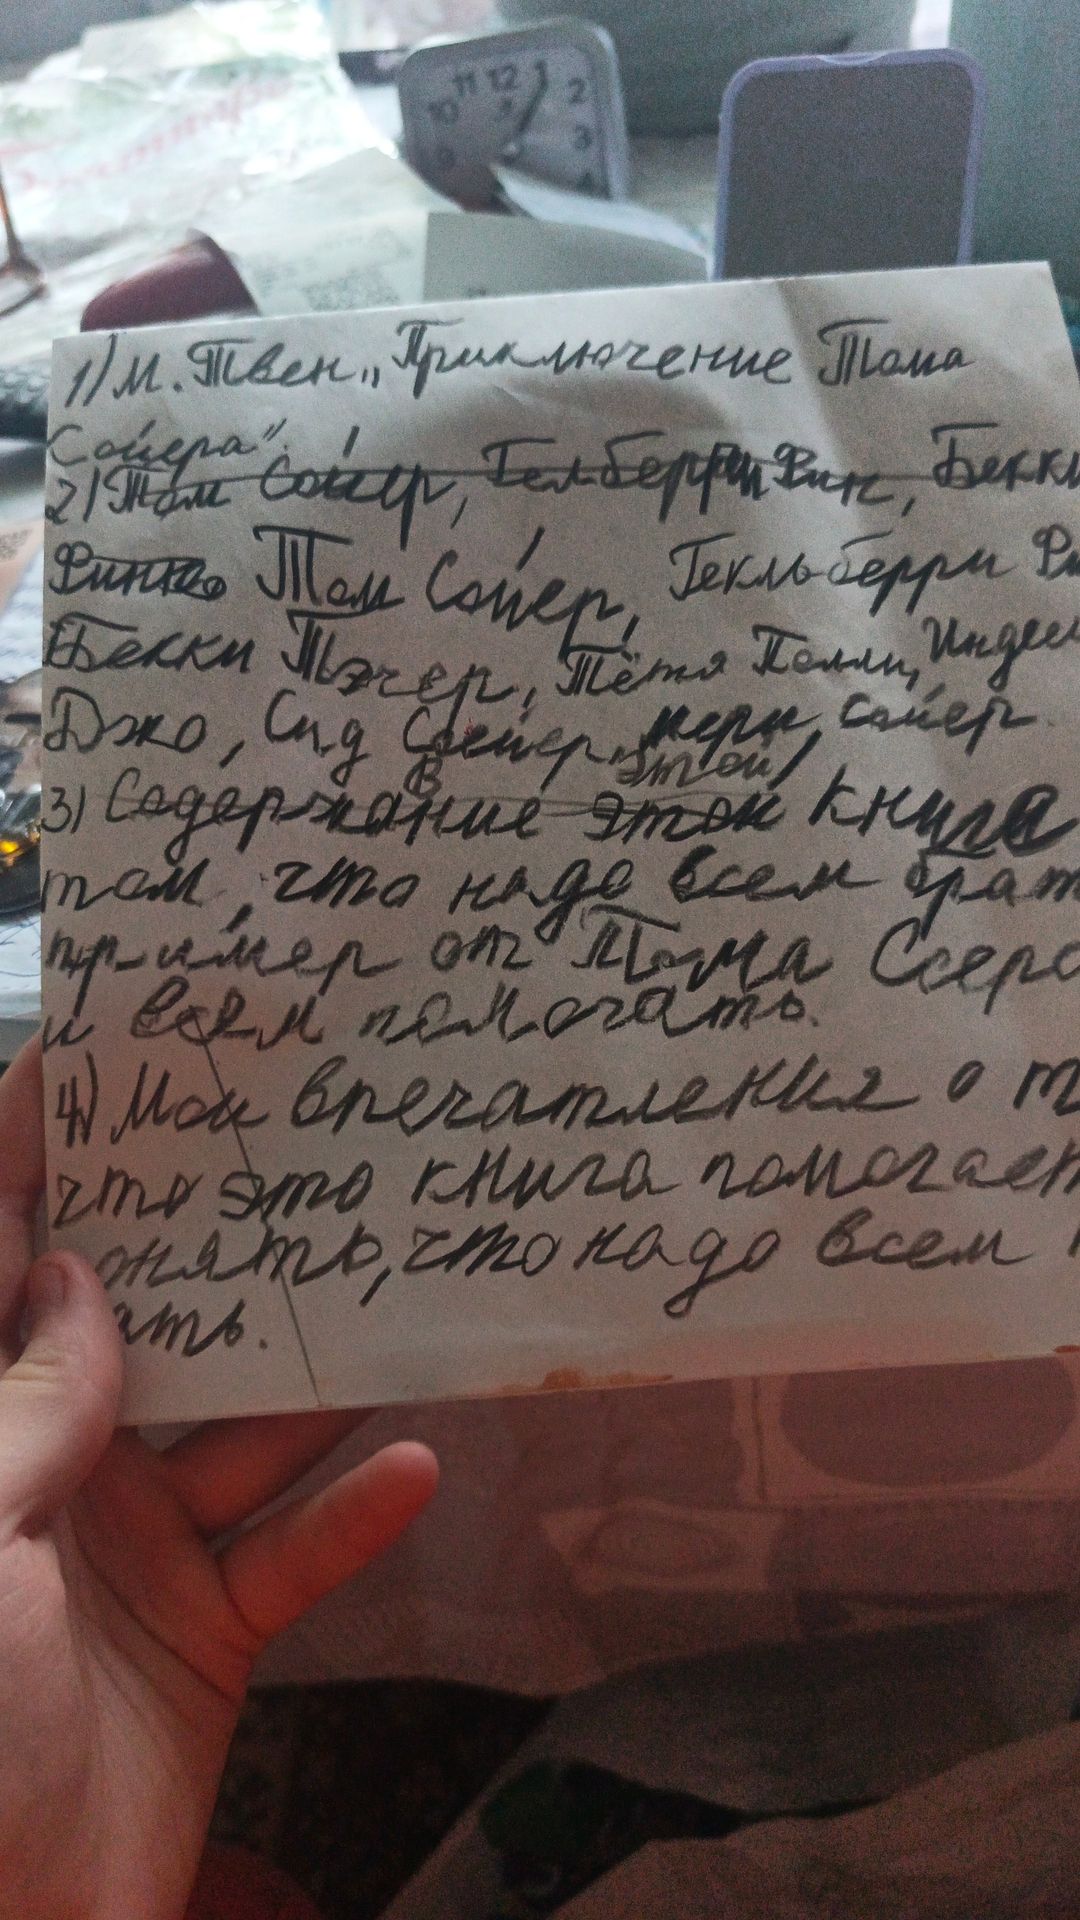 11 12 1 2
10 3
9 4
1) М. Твен „Приключение Тома
Сойера".
2) Том Сойер, Гельберри Финн, Бекки
Финн Том Сойер, Гекльберри Фи
Бекки Тэчер, Тётя Полли, Инде
Джо, Сид Сойер, мери сойер
В этой
3) Содержание этой книга
том, что надо всем брат
пример от Тома Соера
и всем помогать.
4) Мои впечатления о т
что это книга помогает
онять, что надо всем
ать.